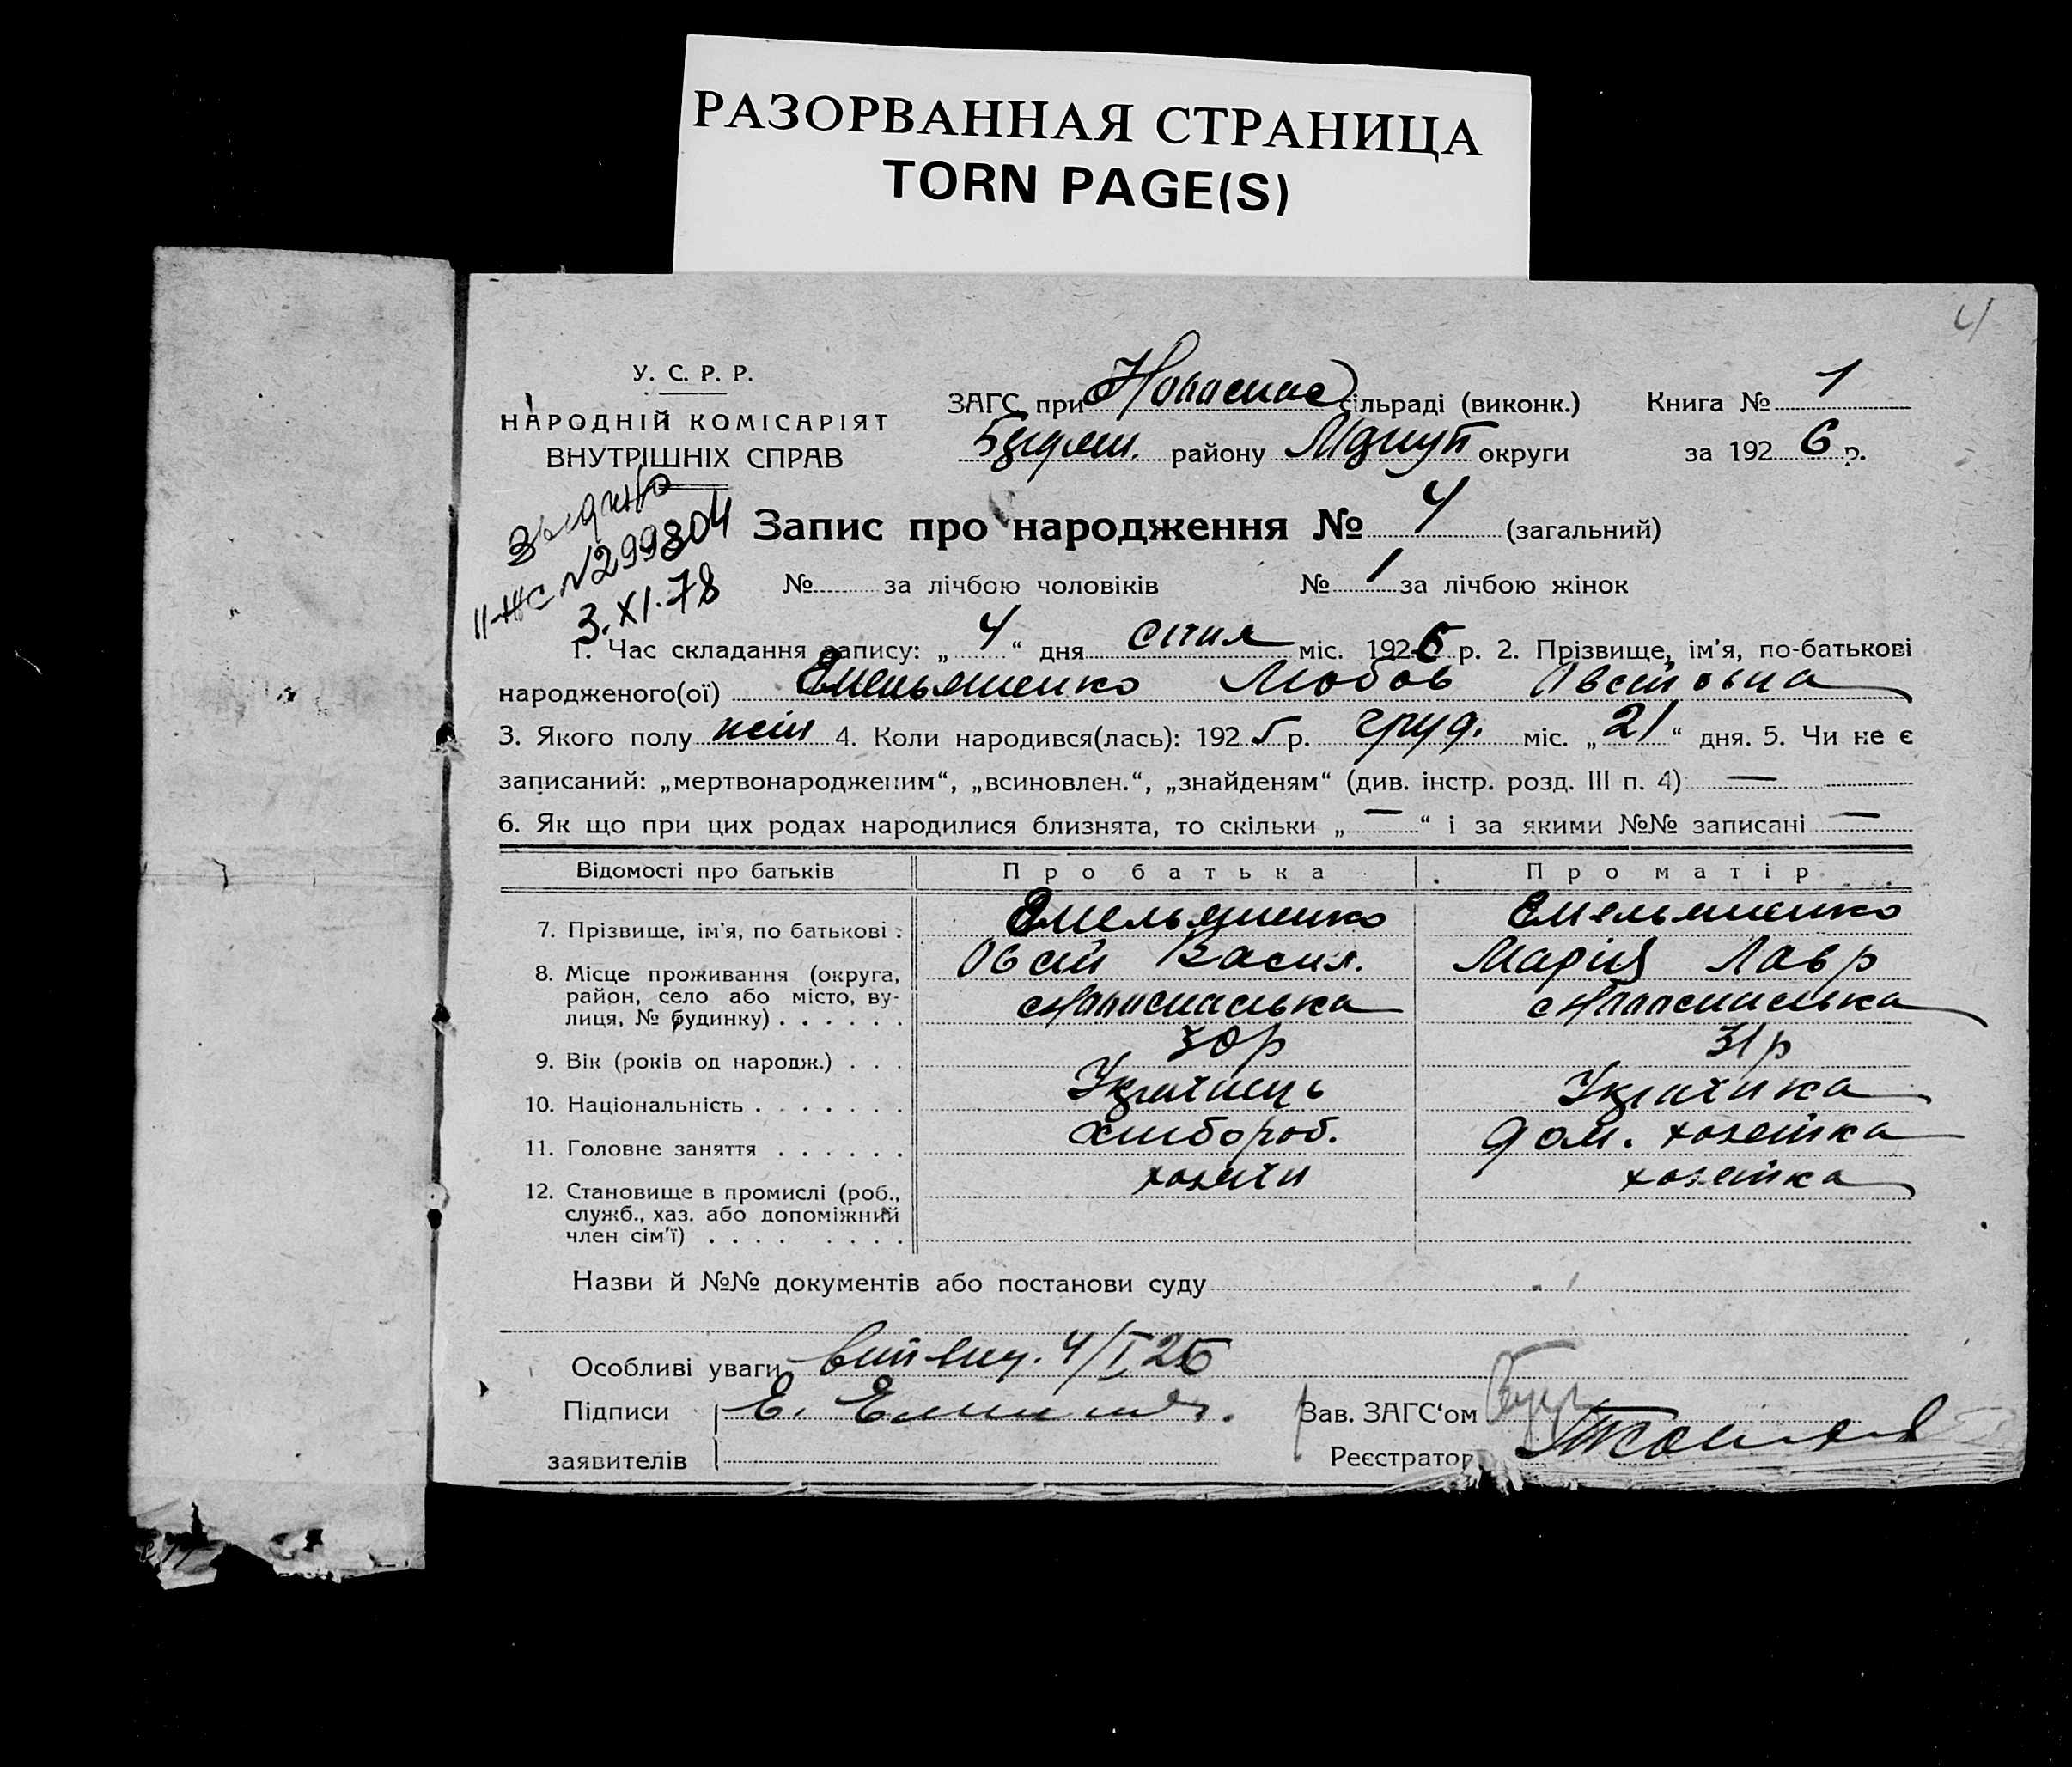 РАЗОРВАННАЯ СТРАНИЦА
TORN PAGE(S)
4
У. С. Р. Р.
НАРОДНІЙ КОМІСАРІЯТ
ВНУТРІШНІХ СПРАВ
ЗАГС при сільраді (виконк.) Книга № 1
району округи за 1926 р.
№299304
3.XI.78
Запис про народження № 4 (загальний)
№ за лічбою чоловіків № 1 за лічбою жінок
1. Час складання запису: „4“ дня січня міс. 1926 р. 2. Прізвище, ім'я, по-батькові
народженого(ої) Емельяненко Любов
3. Якого полу жін 4. Коли народився(лась): 1925 р. груд. міс. „21“ дня. 5. Чи не є
записаний: „мертвонародженим“, „всиновлен.“, „знайденям“ (див. інстр. розд. III п. 4) —
6. Як що при цих родах народилися близнята, то скільки „—“ і за якими №№ записані —
Відомості про батьків Про батька Про матір
7. Прізвище, ім'я, по батькові . Емельяненко Емельяненко
Овсій Васил. Марія Лавр
8. Місце проживання (округа,
район, село або місто, ву-
лиця, № будинку) . . . . . .
9. Вік (років од народж.) . . . 30р 31р
10. Національність . . . . . . . Українець Українка
11. Головне заняття . . . . . . хлібороб. дом. хозяйка
12. Становище в промислі (роб., хозяїн хозяйка
служб., хаз. або допоміжний
член сім'ї) . . . . . . . .
Назви й №№ документів або постанови суду
Особливі уваги 4/I 26
Підписи Е. Зав. ЗАГС‘ом
заявителів Реєстратор